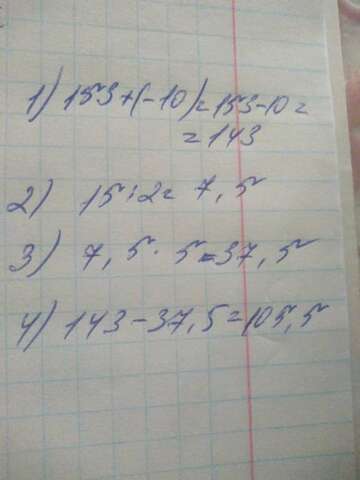 1) 153+(-10)=153-10=
=143
2) 15:2= 7,5
3) 7,5 · 5=37,5
4) 143-37,5=105,5